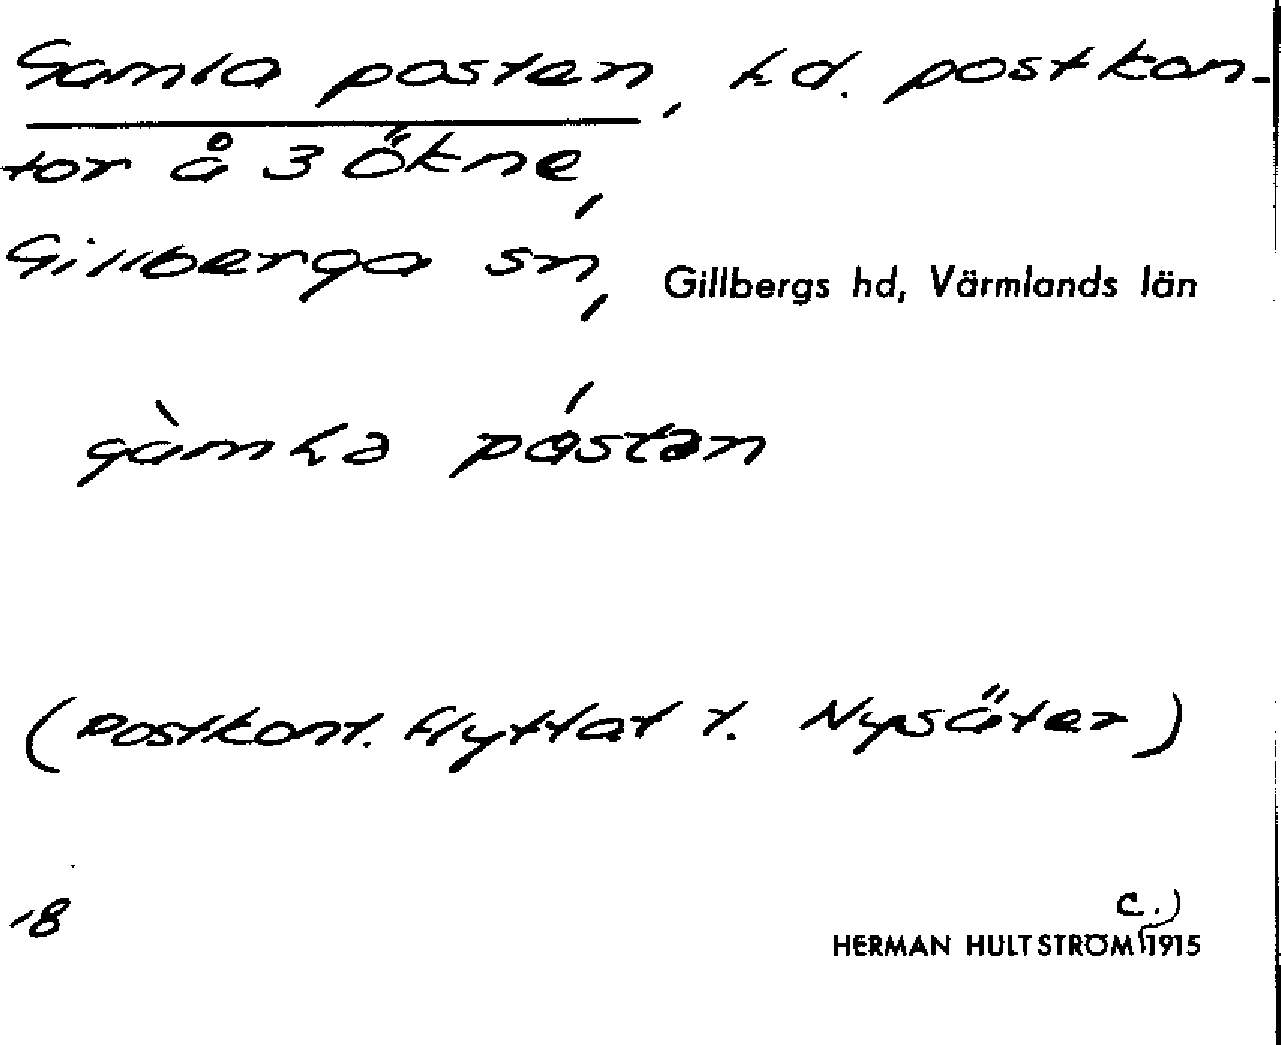 Gamla posten, h d. postkon-
tor å 3 Ökne,
Gillberga sn, Gillbergs hd, Värmlands län
gàmLa póstan
(Postkont. flyttat t. Nysäter)
18
c.
HERMAN HULTSTRÖM 1915